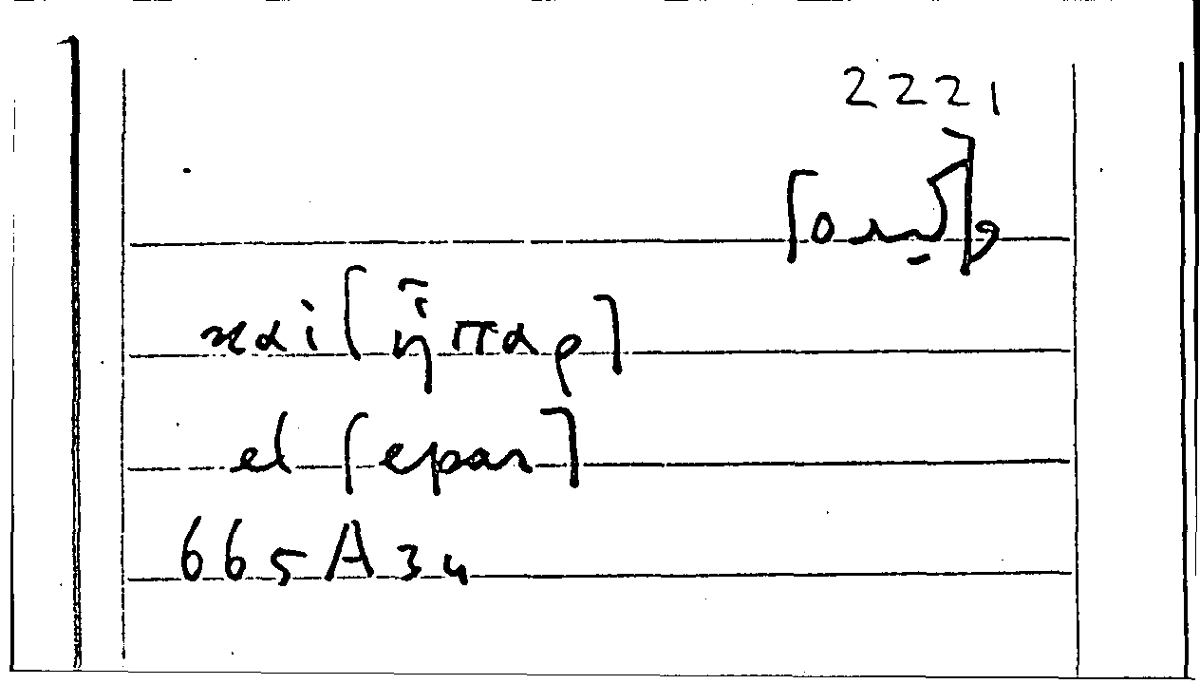 2221
و[كبده]
καὶ [ἧπαρ]
el [epar]
665A34